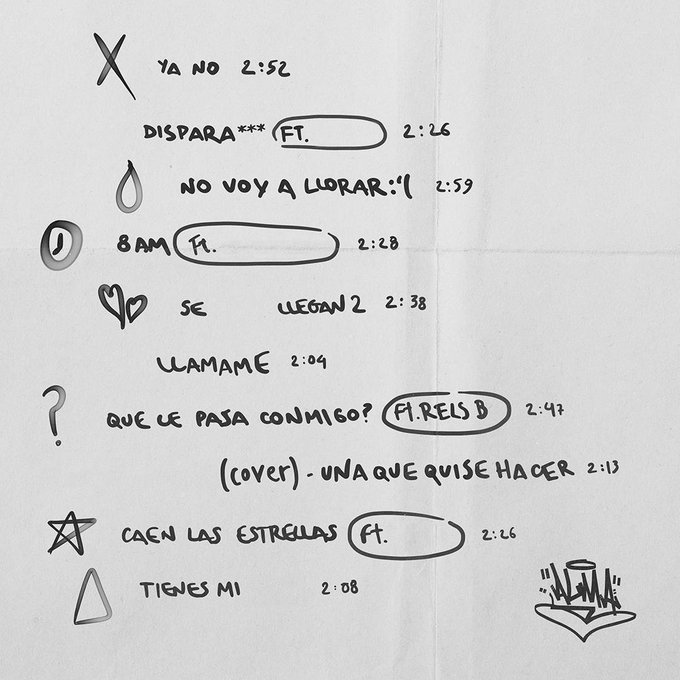 YA NO 2:52
DISPARA*** FT. 2:26
NO VOY A LLORAR:'( 2:59
8AM Ft. 2:28
SE LLEGAN2 2:38
LLAMAME 2:04
QUE LE PASA CONMIGO? Ft.RELS B 2:47
(cover) - UNA QUE QUISE HACER 2:13
CAEN LAS ESTRELLAS Ft. 2:26
TIENES MI 2:08
"ALMA"